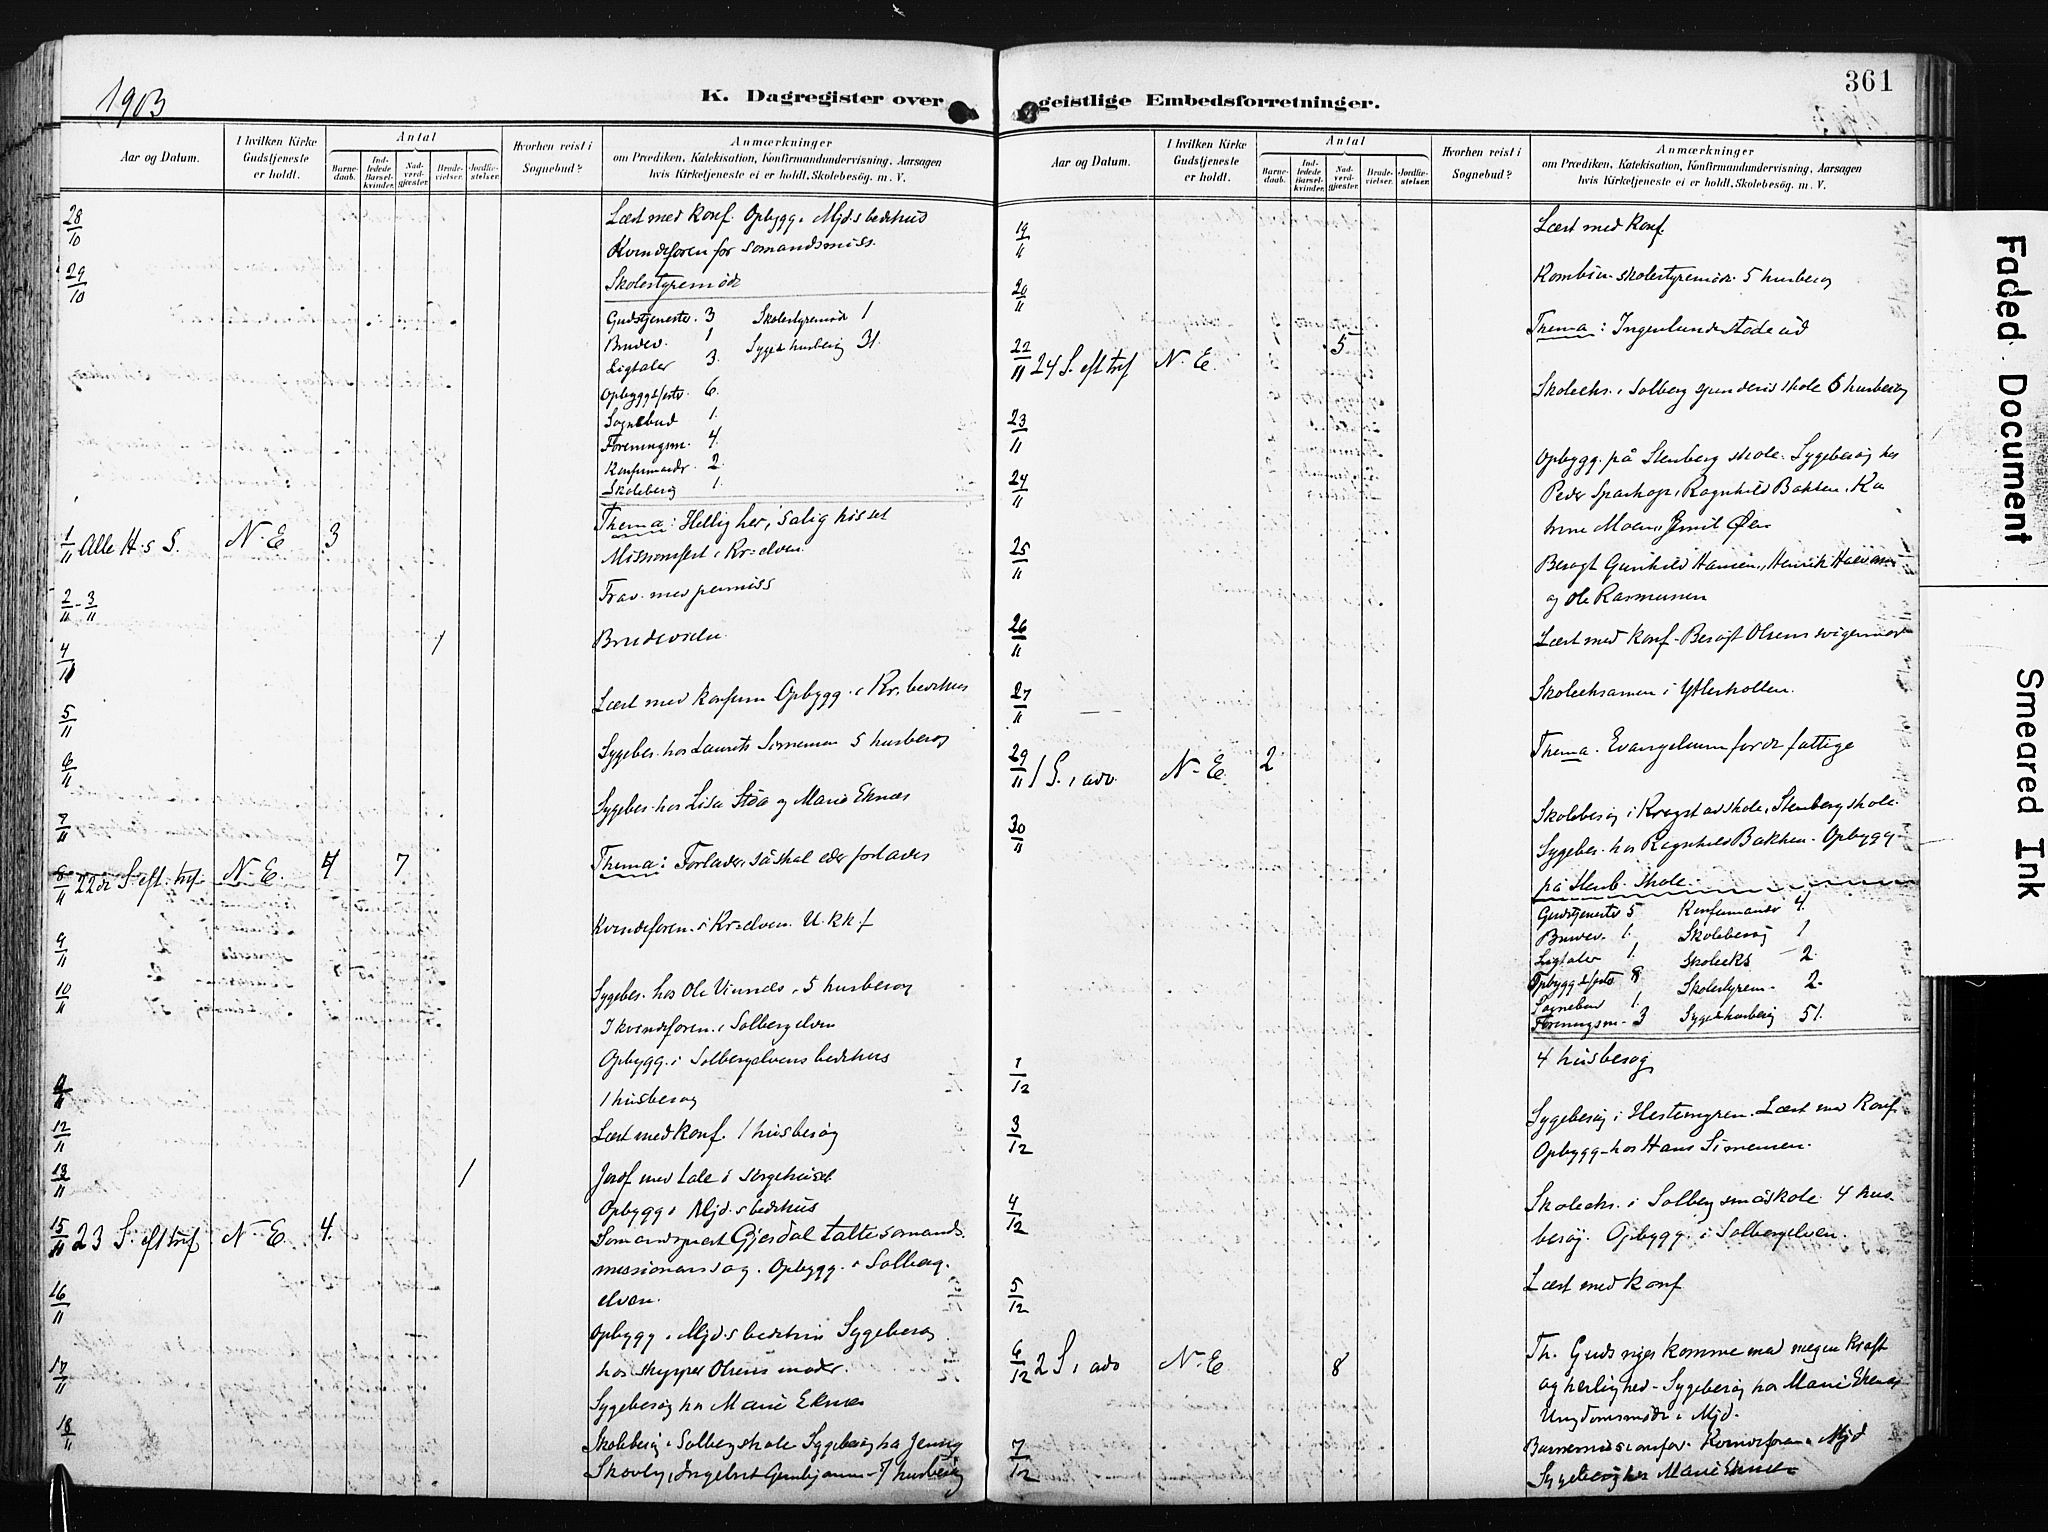 1903
K. Dagregister over
Aar og Datum.
I hvilken Kirke Gudstjeneste er holdt.
Antal
Barnedaab.
Indledede Barselkvinder.
Nadverdgjester.
Brudevielser.
Jordfæstelser.
Hvorhen reist i Sognebud?
Anmærkninger
om Prædiken, Katekisation, Konfirmandundervisning, Aarsagen
hvis Kirketjeneste ei er holdt, Skolebesøg. m. V.
28/10 Læst med konf. Opbygg. i Mjds bedehus
Kvindeforen for sømandsmiss.
29/10 Skolestyremøde
Gudstjenester 3 Skolestyremøde 1
Brudev. 1 Syge & husbesøg 31.
Ligtaler 3.
Opbyggelser 6.
Sognebud 1.
Foreningsm. 4.
Konfirmandr. 2.
Skolebesøg 1.
1/11 Alle H. s S. N. E 3 Thema: Hellig her, salig hisset
Missionsfest i Kr=elven.
2/11 - 3/11 Frav. med permiss
4/11 1 Brudevielse
5/11 Læst med konfirm Opbygg. i Kr. bedehus
6/11 Sygebes. hos Laurits Simensen 5 husbesøg
7/11 Sygebes. hos Lisa Stoa og Marie Eknæs
8/11 22de S. eft. tref. N. E. 4 7 Thema: Forlader, så skal eder forlades
9/11 Kvindeforen. i Kr=elven.
10/11 Sygebes. hos Ole Vinnæs, 5 husbesøg
I kvindeforen. i Solbergelven
Opbygg. i Solbergelvens bedehus
1 husbesøg
12/11 Læst med konf. 1 husbesøg
13/11 1 Jordf med tale i sørgehuset
Opbygg i Mjd.s bedehus
15/11 23 S. eft tref N. E 4. Sømandsprest Gjerdal talte sømands
missionens sag. Opbygg. i Solberg.
16/11 elven.
Opbygg i Mjd.s bedehus Sygebesøg
17/11 hos skipper Olsens moder.
Sygebesøg hos Marie Eknæs
18/11 Skolebesøg i Solberg skole Sygebesøg hos Jenny
Skovly, Ingebret 7 husbesøg
361
geistlige Embedsforretninger.
Aar og Datum.
I hvilken Kirke Gudstjeneste er holdt.
Antal
Barnedaab.
Indledede Barselkvinder.
Nadverdgjester.
Brudevielser.
Jordfæstelser.
Hvorhen reist i Sognebud?
Anmærkninger
om Prædiken, Katekisation, Konfirmandundervisning, Aarsagen
hvis Kirketjeneste ei er holdt, Skolebesøg. m. V.
19/11 Læst med konf.
20/11 Kombin. skolestyremøde. 5 husbesøg
22/11 24 S. eft tref N. E. 5 Thema: Ingenlunde støde ud
23/11 Skoleeks. i Solberg spinderis skole 6 husbesøg
24/11 Opbygg. på Stenberg skole. Sygebesøg hos
Peder Sparhop, Ragnhild Bakken, Ka
trine Moen, Emil Øen
25/11 Besøgt Gunhild Hansen, Henrik
og Ole Rasmussen
26/11 Læst med konf. Besøgt Olsens svigermor
27/11 Skoleeksamen i Ytterkollen.
29/11 1 S. i adv. N. E. 2 Thema. Evangelium for de fattige
30/11 Skolebesøg i Krogstad skole, Stenberg skole.
Sygebes. hos Ragnhild Bakken. Opbygg
på Stenb. skole.
Gudstjenester 5 Konfirmandr 4.
Brudev. 1. Skolebesøg 1
Ligtaler 1. Skoleeks 2.
Opbyggelser 8 Skolestyrem. 2.
Sognebud 1.
Foreningsm. 3 Syge & husbesøg 51.
1/12 4 husbesøg
3/12 Sygebesøg i Hestengren. Læst med konf
Opbygg. hos Hans Simensen.
4/12 Skoleeks. i Solberg småskole. 4 hus
besøg. Opbygg. i Solbergelven.
5/12 Læst med konf
6/12 2 S. i adv N. E 8 Th. Guds riges komme med megen kraft
og herlighed. Sygebesøg hos Marie Eknæs
Ungdomsmøde i Mjd.
7/12 Barnemissionsfor. Kvindeforen i Mjd
Sygebesøg hos Marie Eknæs
Faded Document
Smeared Ink